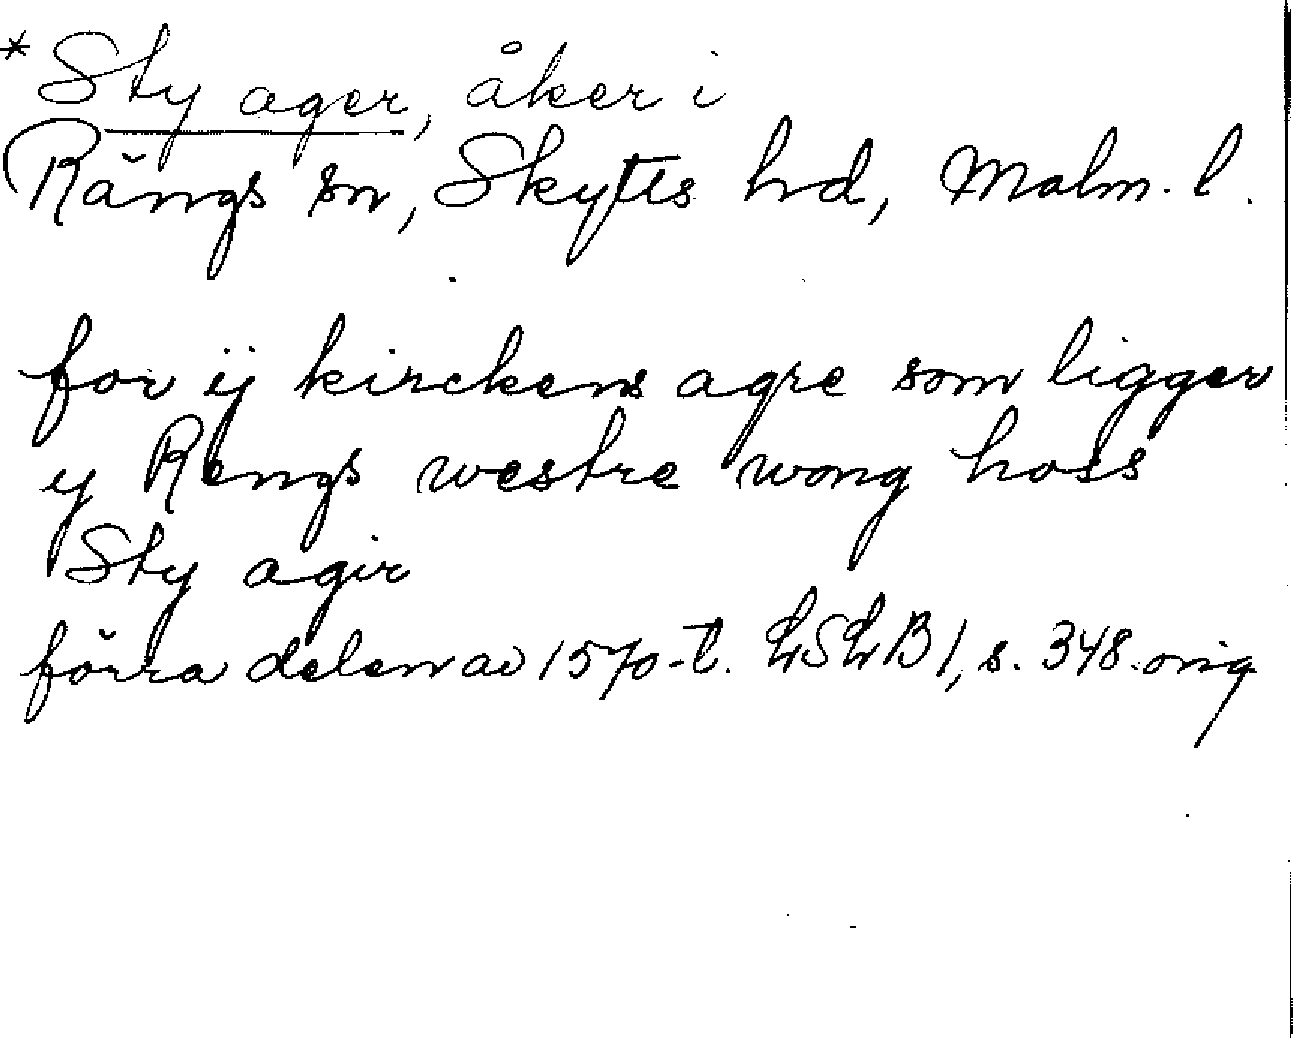 * Sty ager, åker i
Rängs sn, Skytts hd, Malm. l.
for ij kirckens agre som ligger
y Rengs westre wong hoss
Sty agir
förra delen av 1570-t. LSLB1, s. 348. orig